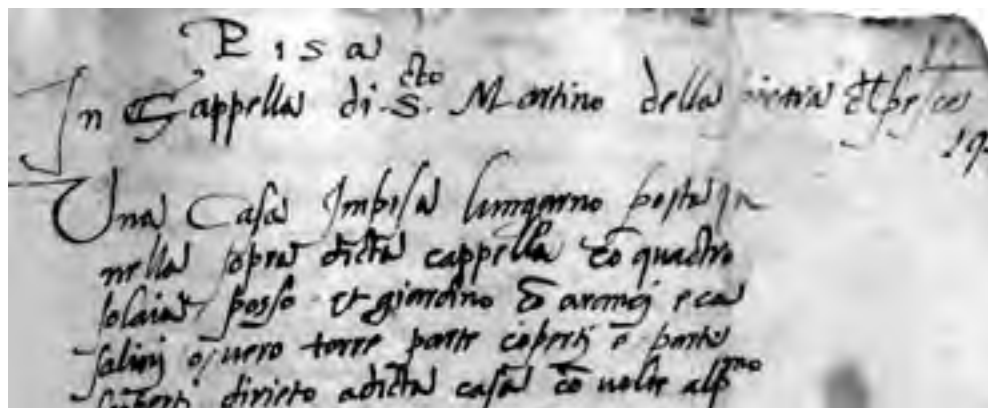 Pisa
In Cappella di S.cto Martino della pietra del pesce
Una Casa Impisa lungarno posta in
nella sopra dicta cappella cō quatro
solaia posso et giardino d aranci e ca
salini overo torre parte coperti e parte
scoperti dirieto adicta casa cō volte alp.mo